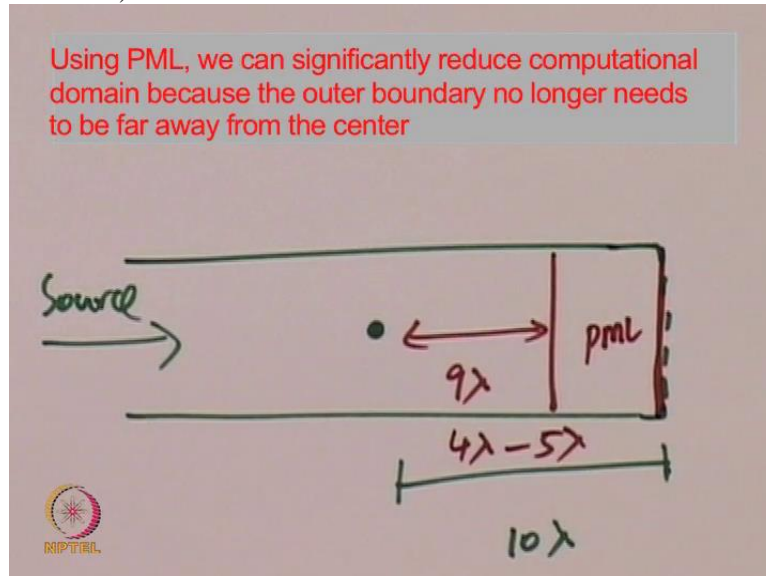 Using PML, we can significantly reduce computational
domain because the outer boundary no longer needs
to be far away from the center
Source
pml
9λ
4λ-5λ
10λ
NPTEL